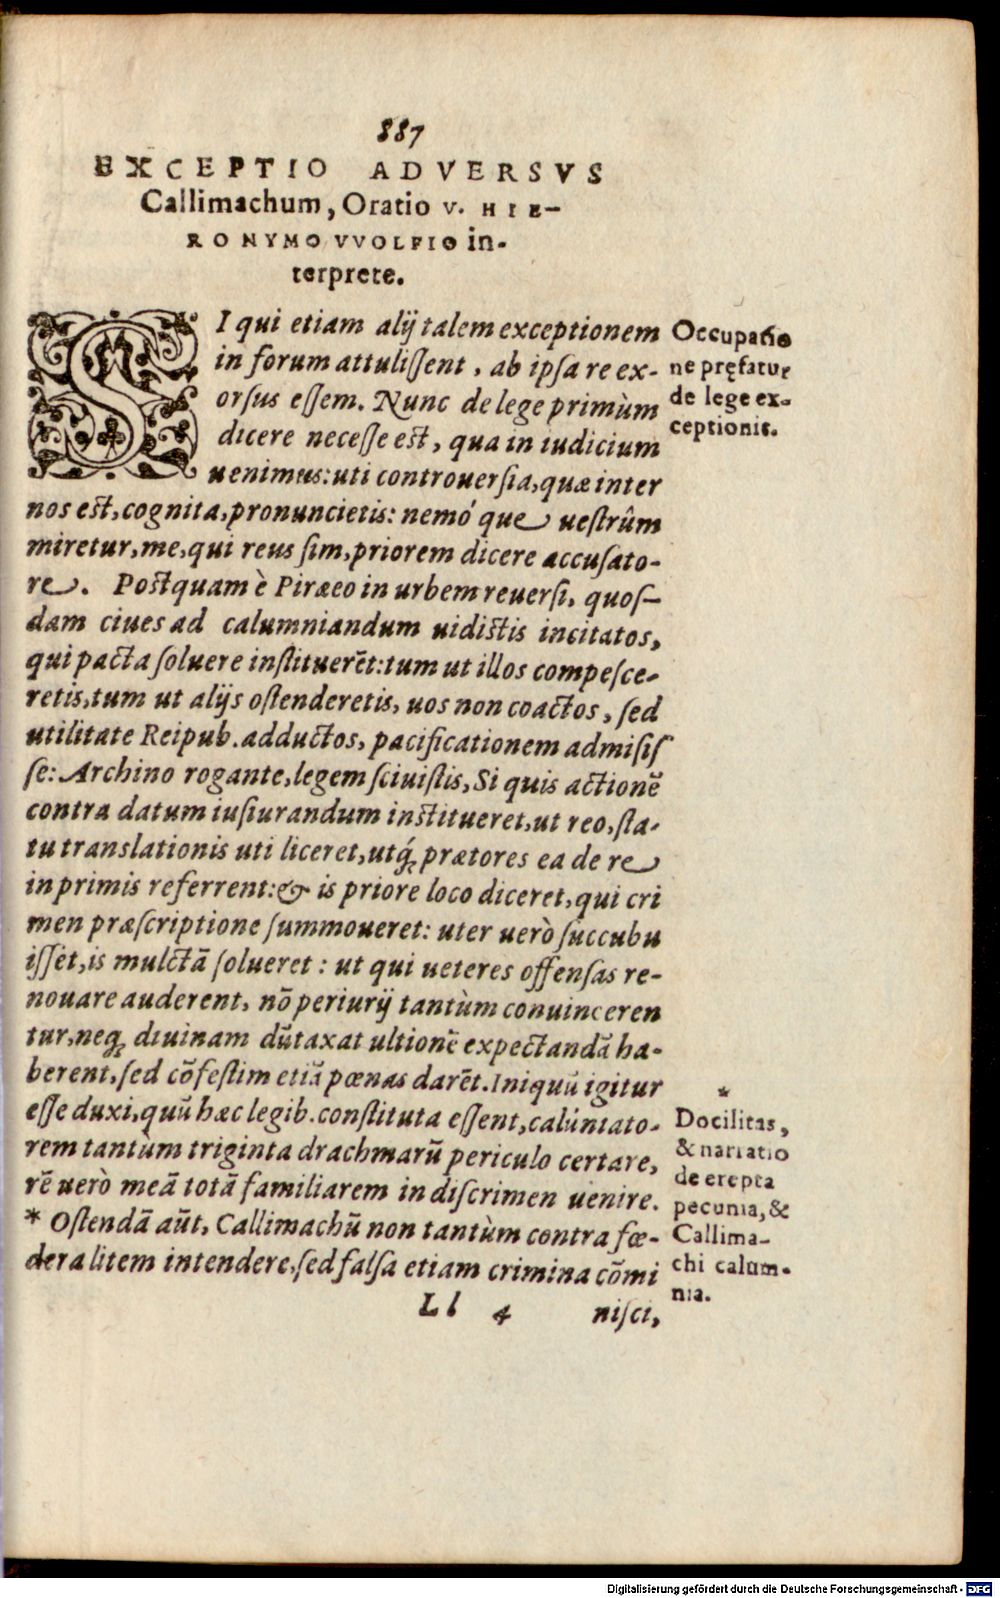 887
EXCEPTIO ADVERSVS
Callimachum, Oratio V. HIE-
RONYMO VVOLFIO in-
terprete.
SI qui etiam alij talem exceptionem
in forum attulissent, ab ipsa re ex-
orsus essem. Nunc de lege primùm
dicere necesse est, qua in iudicium
uenimus: uti controuersia, quæ inter
nos est, cognita, pronuncietis: nemó que uestrûm
miretur, me, qui reus sim, priorem dicere accusato-
re. Postquam è Piræeo in urbem reuersi, quos-
dam ciues ad calumniandum uidistis incitatos,
qui pacta soluere instituerẽt: tum ut illos compesce-
retis, tum ut alijs ostenderetis, uos non coactos, sed
utilitate Reipub. adductos, pacificationem admisis
se: Archino rogante, legem sciuistis, Si quis actionẽ
contra datum iusiurandum institueret, ut reo, sta-
tu translationis uti liceret, utq́; prætores ea de re
in primis referrent: & is priore loco diceret, qui cri
men præscriptione summoueret: uter uerò succubu
isset, is mulctã solueret: ut qui ueteres offensas re-
nouare auderent, nõ periurij tantùm conuinceren
tur, neq; diuinam dũtaxat ultionẽ expectandã ha-
berent, sed cõfestim etiã pœnas darẽt. Iniquũ igitur
esse duxi, quũ hæc legib. constituta essent, calũniato-
rem tantùm triginta drachmarũ periculo certare,
rẽ uerò meã totã familiarem in discrimen uenire.
* Ostendã aũt, Callimachũ non tantùm contra fœ-
dera litem intendere, sed falsa etiam crimina cõmi
Ll 4 nisci,
Occupatio
ne pręfatur
de lege ex-
ceptionis.
*
Docilitas,
& narratio
de erepta
pecunia, &
Callima-
chi calum-
nia.
Digitalisierung gefördert durch die Deutsche Forschungsgemeinschaft - DFG